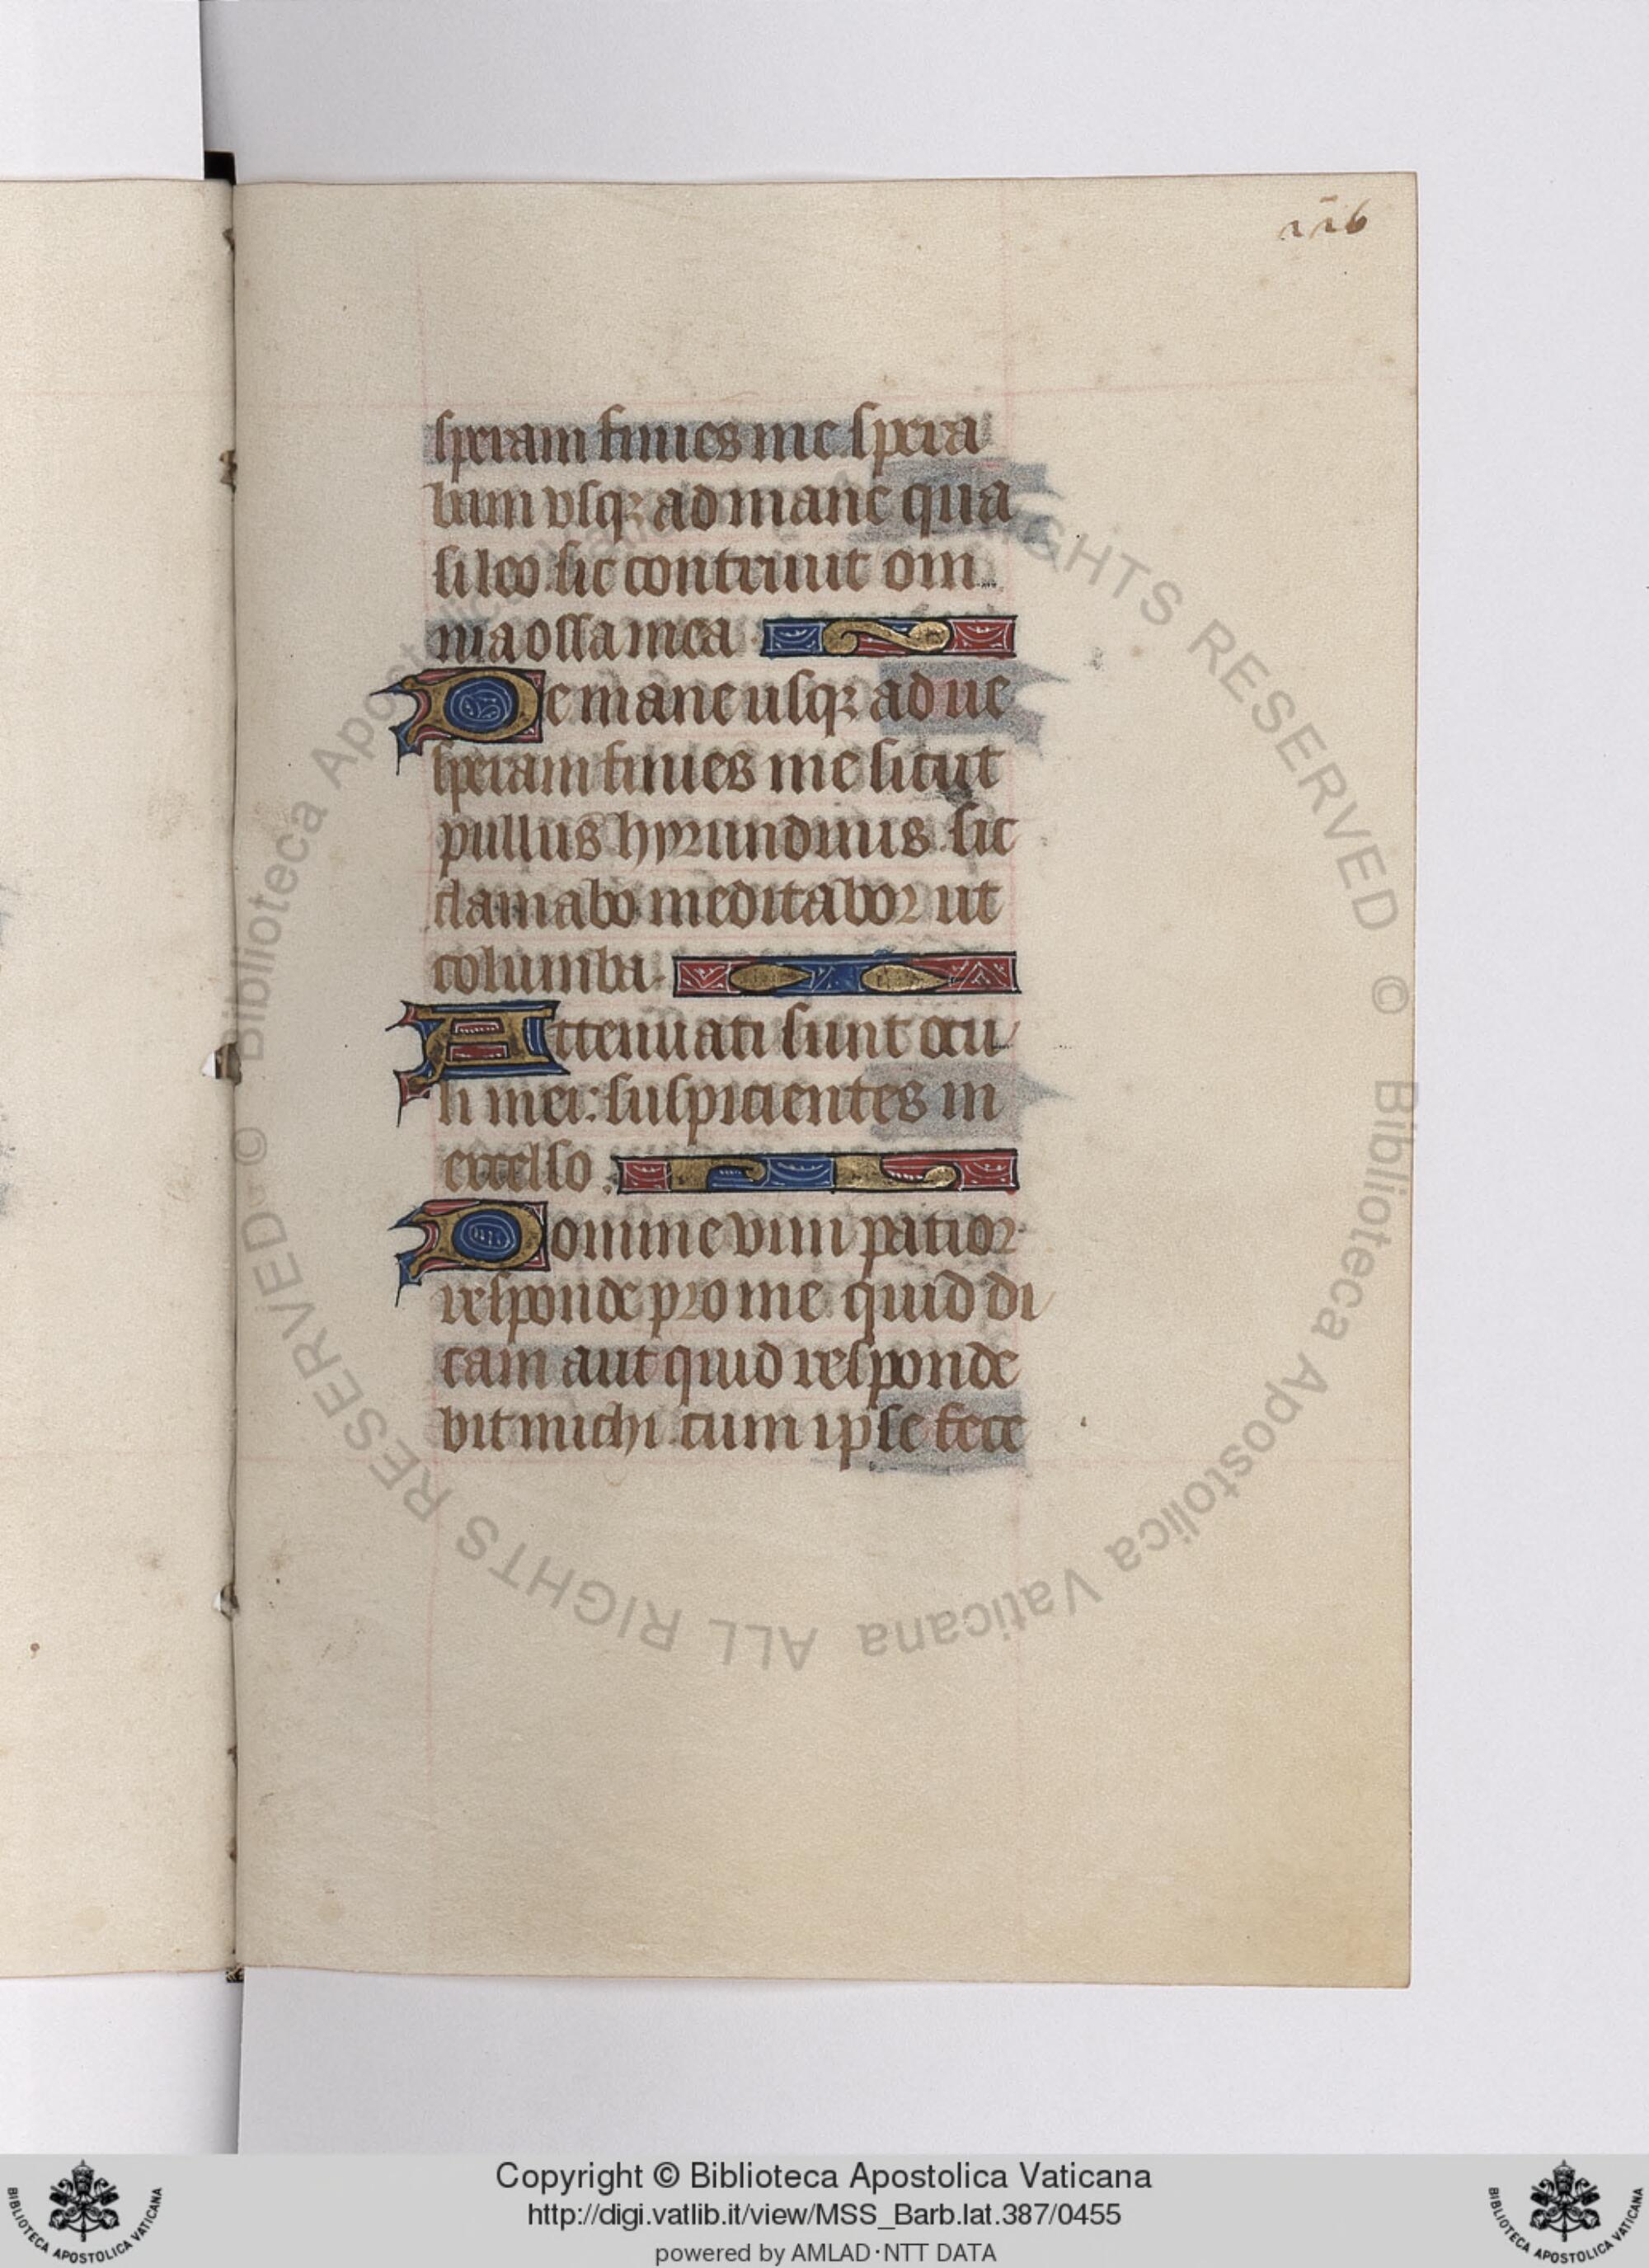 226
speram finies me spera
bam vsqꝫ ad mane qua
si leo sic contriuit om
nia ossa mea
De mane usqꝫ ad ue
speram finies me sicut
pullus hyrundinis sic
clamabo meditabor ut
columba.
Attenuati sunt ocu
li mei: suspicientes in
excelso.
Domine vim patior
responde pro me quid di
cam aut quid responde
bit michi cum ipse fece
© Biblioteca Apostolica Vaticana ALL RIGHTS RESERVED © Biblioteca Apostolica Vaticana ALL RIGHTS RESERVED
Copyright © Biblioteca Apostolica Vaticana
http://digi.vatlib.it/view/MSS_Barb.lat.387/0455
powered by AMLAD·NTT DATA
BIBLIOTECA APOSTOLICA VATICANA
BIBLIOTECA APOSTOLICA VATICANA